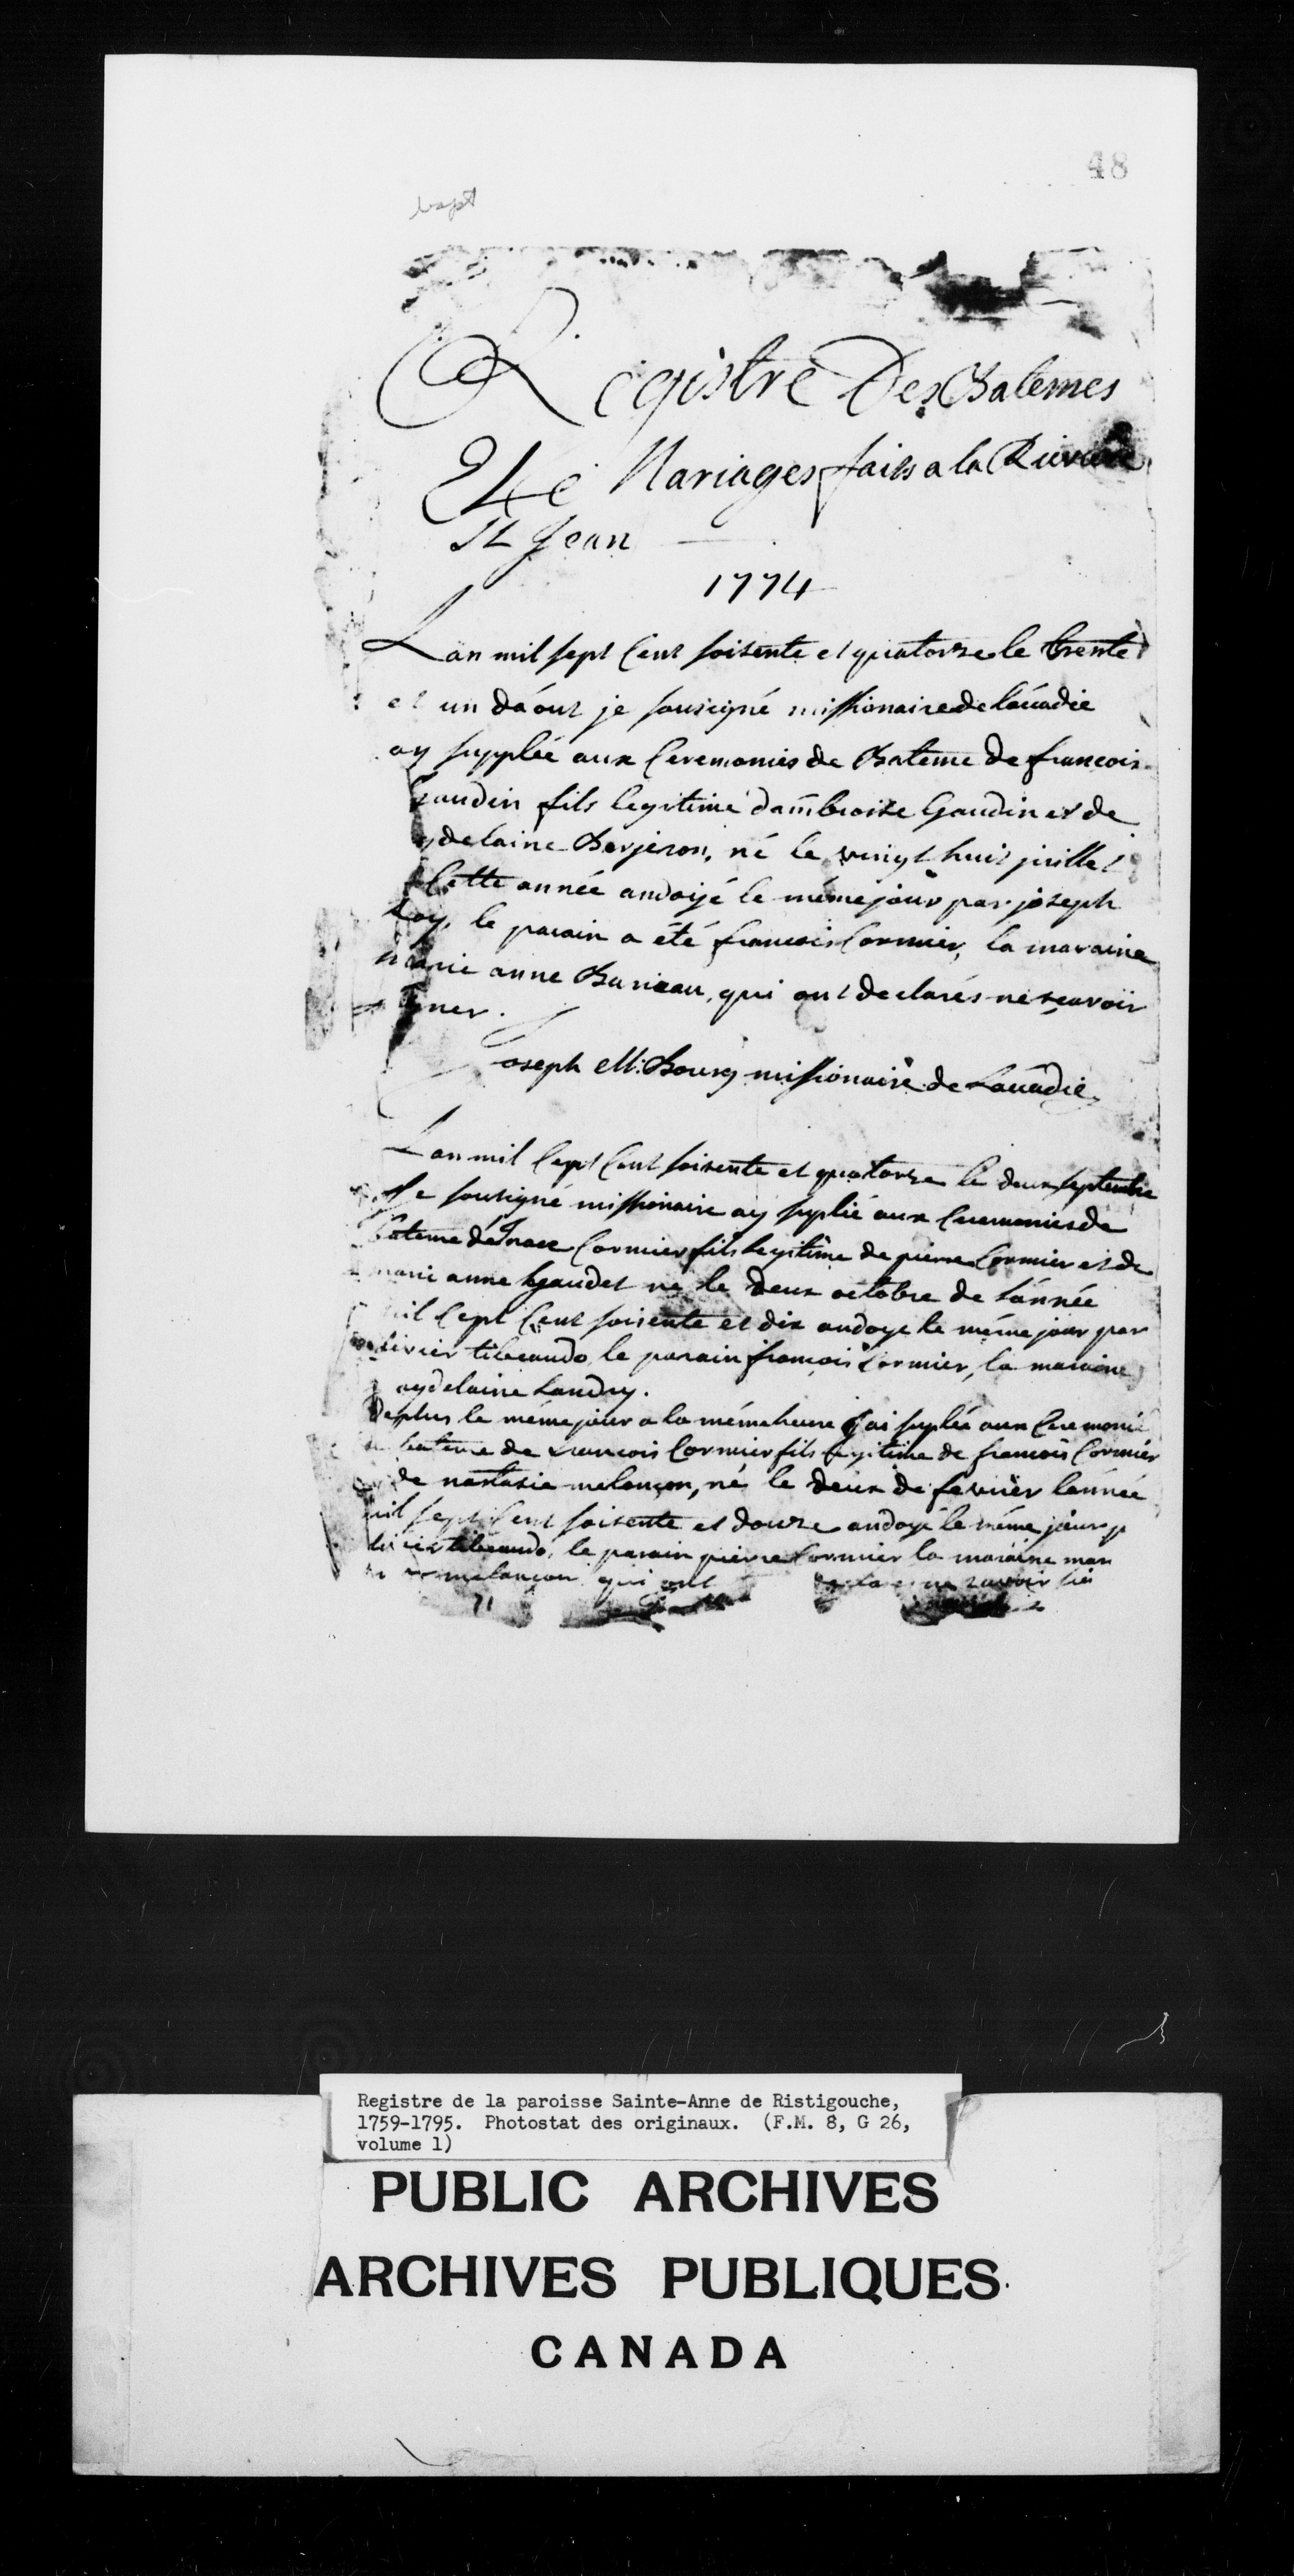 48
bapt
Registre Des Batemes
Et Mariages faits a la Riviere
St Jean
1774
Lan mil sept Cent soisente et quatorze le trente
et un dáout je sousigné missionaire de lácadie
ay supplée aux Ceremonies de Bateme de francois
Gaudin fils legitime dámbroise Gaudin et de
delaine Berjeron, né le vingt huit juillet
Cette année andoyé le même jour par joseph
Roy, le parain a été francois Cormier, la maraine
marie anne Buneau, qui ont declarés ne sçavoir
signer.
Joseph M: Bourg missionaire de Lacadie
Lan mil Sept Cent soisente et quatorze le deux septembre
Je sousigné missionaire ay suplié aux Ceremonies de
Bateme de Cormier fils legitime de pierre Cormier et de
marie anne Gaudet ne le deux octobre de lánnée
mil Sept Cent soisente et dix andoye le même jour par
olivier tibeaudo, le parain françois Cormier, la maraine
aydelaine Landry.
De plus le même jour a la même heure j'ai suplée aux Ceremonie
de bateme de francois Cormier fils legitime de francois Cormier
de nastasie melançon, né le deux de fevrier lannée
mil sept Cent soisente et douze andoyé le même jour p
tibeaudo, le parain pierre Cormier la maraine mar
melançon qui ont ne savoir si
71
Registre de la paroisse Sainte-Anne de Ristigouche,
1759-1795. Photostat des originaux. (F.M. 8, G 26,
volume 1)
PUBLIC ARCHIVES
ARCHIVES PUBLIQUES
CANADA